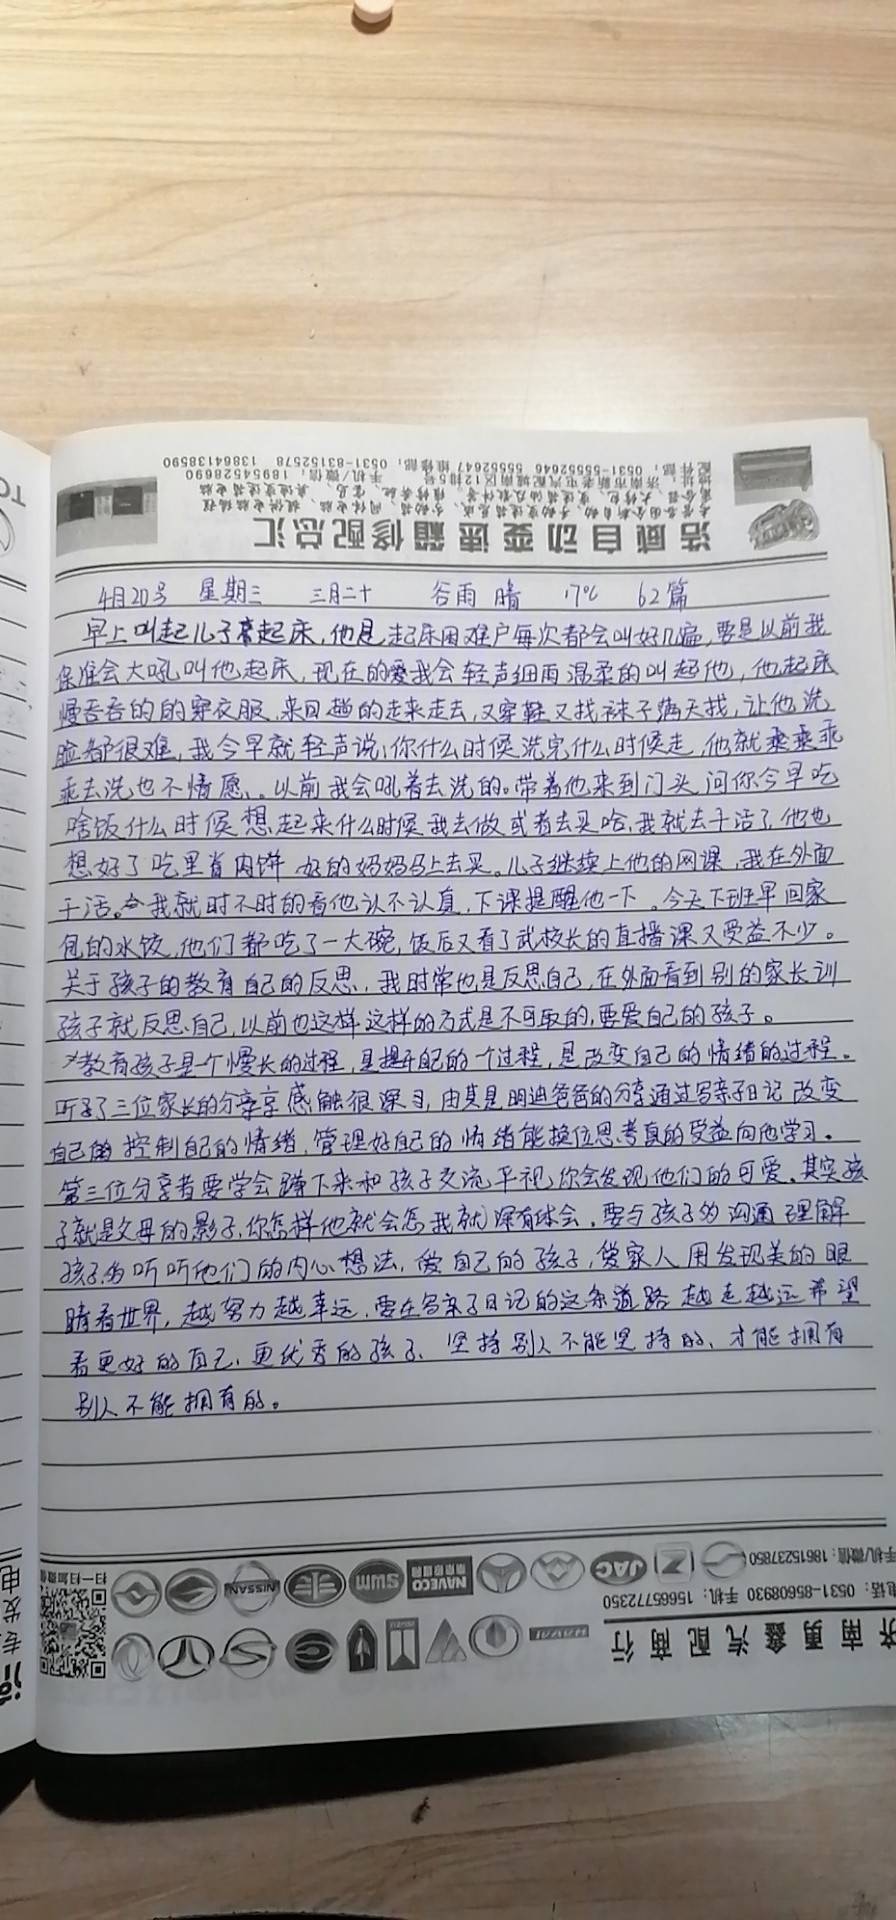 浩威自动变速箱修配总汇
手机/微信：18954528690
配件部：0531-55552646 55552647 维修部：0531-83152578 13864138590
4月20号 星期三 三月二十 谷雨 晴 17℃ 62篇
早上叫起儿子起床，他是起床困难户每次都会叫好几遍，要是以前我
保准会大吼叫他起床，现在的爱我会轻声细雨温柔的叫起他，他起床
慢吞吞的的穿衣服，来回趟的走来走去，又穿鞋又找袜子满天找，让他洗
脸都很难，我今早就轻声说，你什么时候洗完什么时候走，他就乖乖乖
乖去洗也不情愿、以前我会吼着去洗的。带着他来到门头问你今早吃
啥饭什么时候想起来什么时候我去做或者去买哈，我就去干活了，他也
想好了吃里脊肉饼 好的妈妈马上去买。儿子继续上他的网课，我在外面
干活。我就时不时的看他认不认真，下课提醒他一下。今天下班早回家
包的水饺，他们都吃了一大碗，饭后又看了武校长的直播课又受益不少。
关于孩子的教育自己的反思，我时常也是反思自己，在外面看到别的家长训
孩子就反思自己，以前也这样这样的方式是不可取的，要爱自己的孩子。
教育孩子是一个慢长的过程，是提升自己的一个过程，是改变自己的情绪的过程。
听了三位家长的分享感触很深刻，由其是明迪爸爸的分享通过写亲子日记改变
自己的控制自己的情绪，管理好自己的情绪能换位思考真的受益向他学习。
第三位分享者要学会蹲下来和孩子交流平视，你会发现他们的可爱。其实孩
子就是父母的影子，你怎样他就会怎我就深有体会，要与孩子的沟通理解
孩子的听听他们的内心想法，爱自己的孩子，爱家人用发现美的眼
睛看世界，越努力越幸运，要在写亲子日记的这条道路越走越远希望
看更好的自己，更优秀的孩子、坚持别人不能坚持的、才能拥有
别人不能拥有的。
扫一扫加微信
NISSAN SWM NAVECO JAC
HAVAL
济南勇鑫汽配商行
电话：0531-85608930 手机：15665772350
手机/微信：18615237850